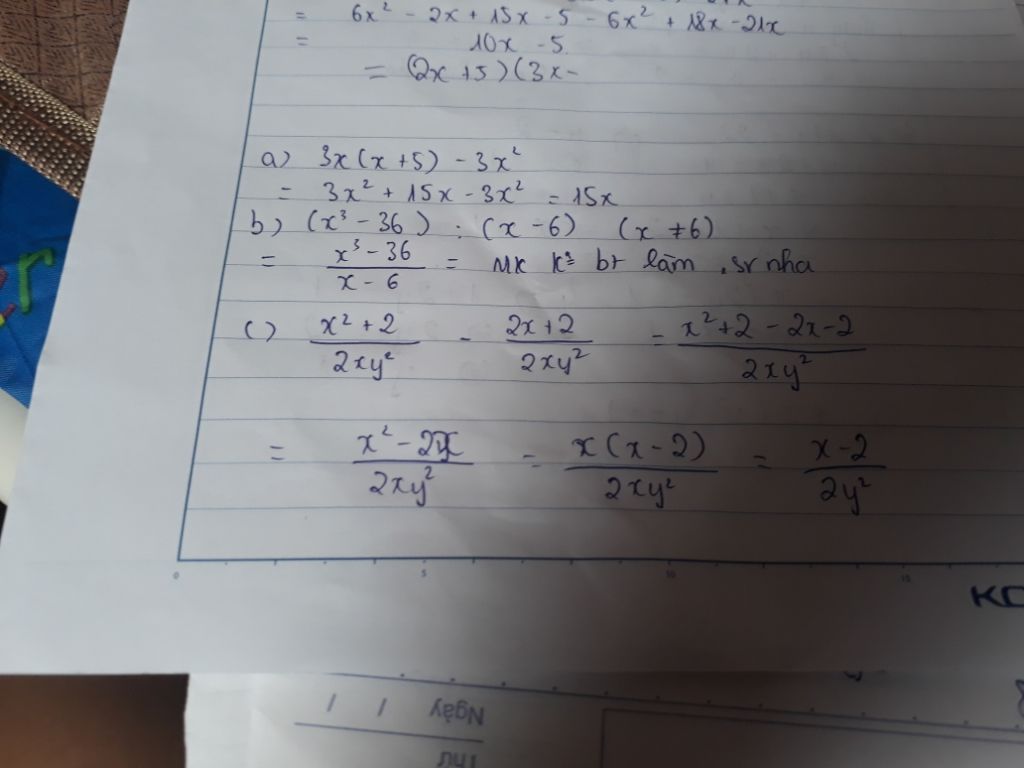 = 6x² - 2x + 15x - 5 - 6x² + 18x - 21x
= 10x - 5
= (2x + 5)(3x -
a) 3x(x + 5) - 3x²
= 3x² + 15x - 3x² = 15x
b) (x³ - 36) : (x - 6) (x ≠ 6)
= \frac{x³ - 36}{x - 6} = mk k² bt làm, sr nha
c) \frac{x² + 2}{2xy²} - \frac{2x + 2}{2xy²} = \frac{x² + 2 - 2x - 2}{2xy²}
= \frac{x² - 2x}{2xy²} = \frac{x(x - 2)}{2xy²} = \frac{x - 2}{2y²}
0 5 10 15
KO
Ngày / /
Thứ